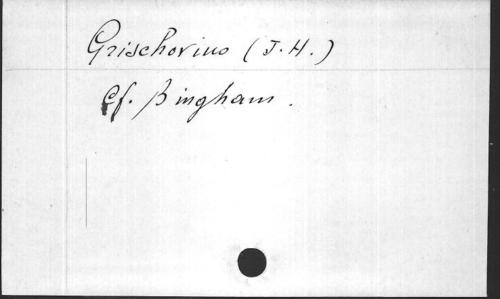 Grischovius (J. H.)
Cf. Bingham.